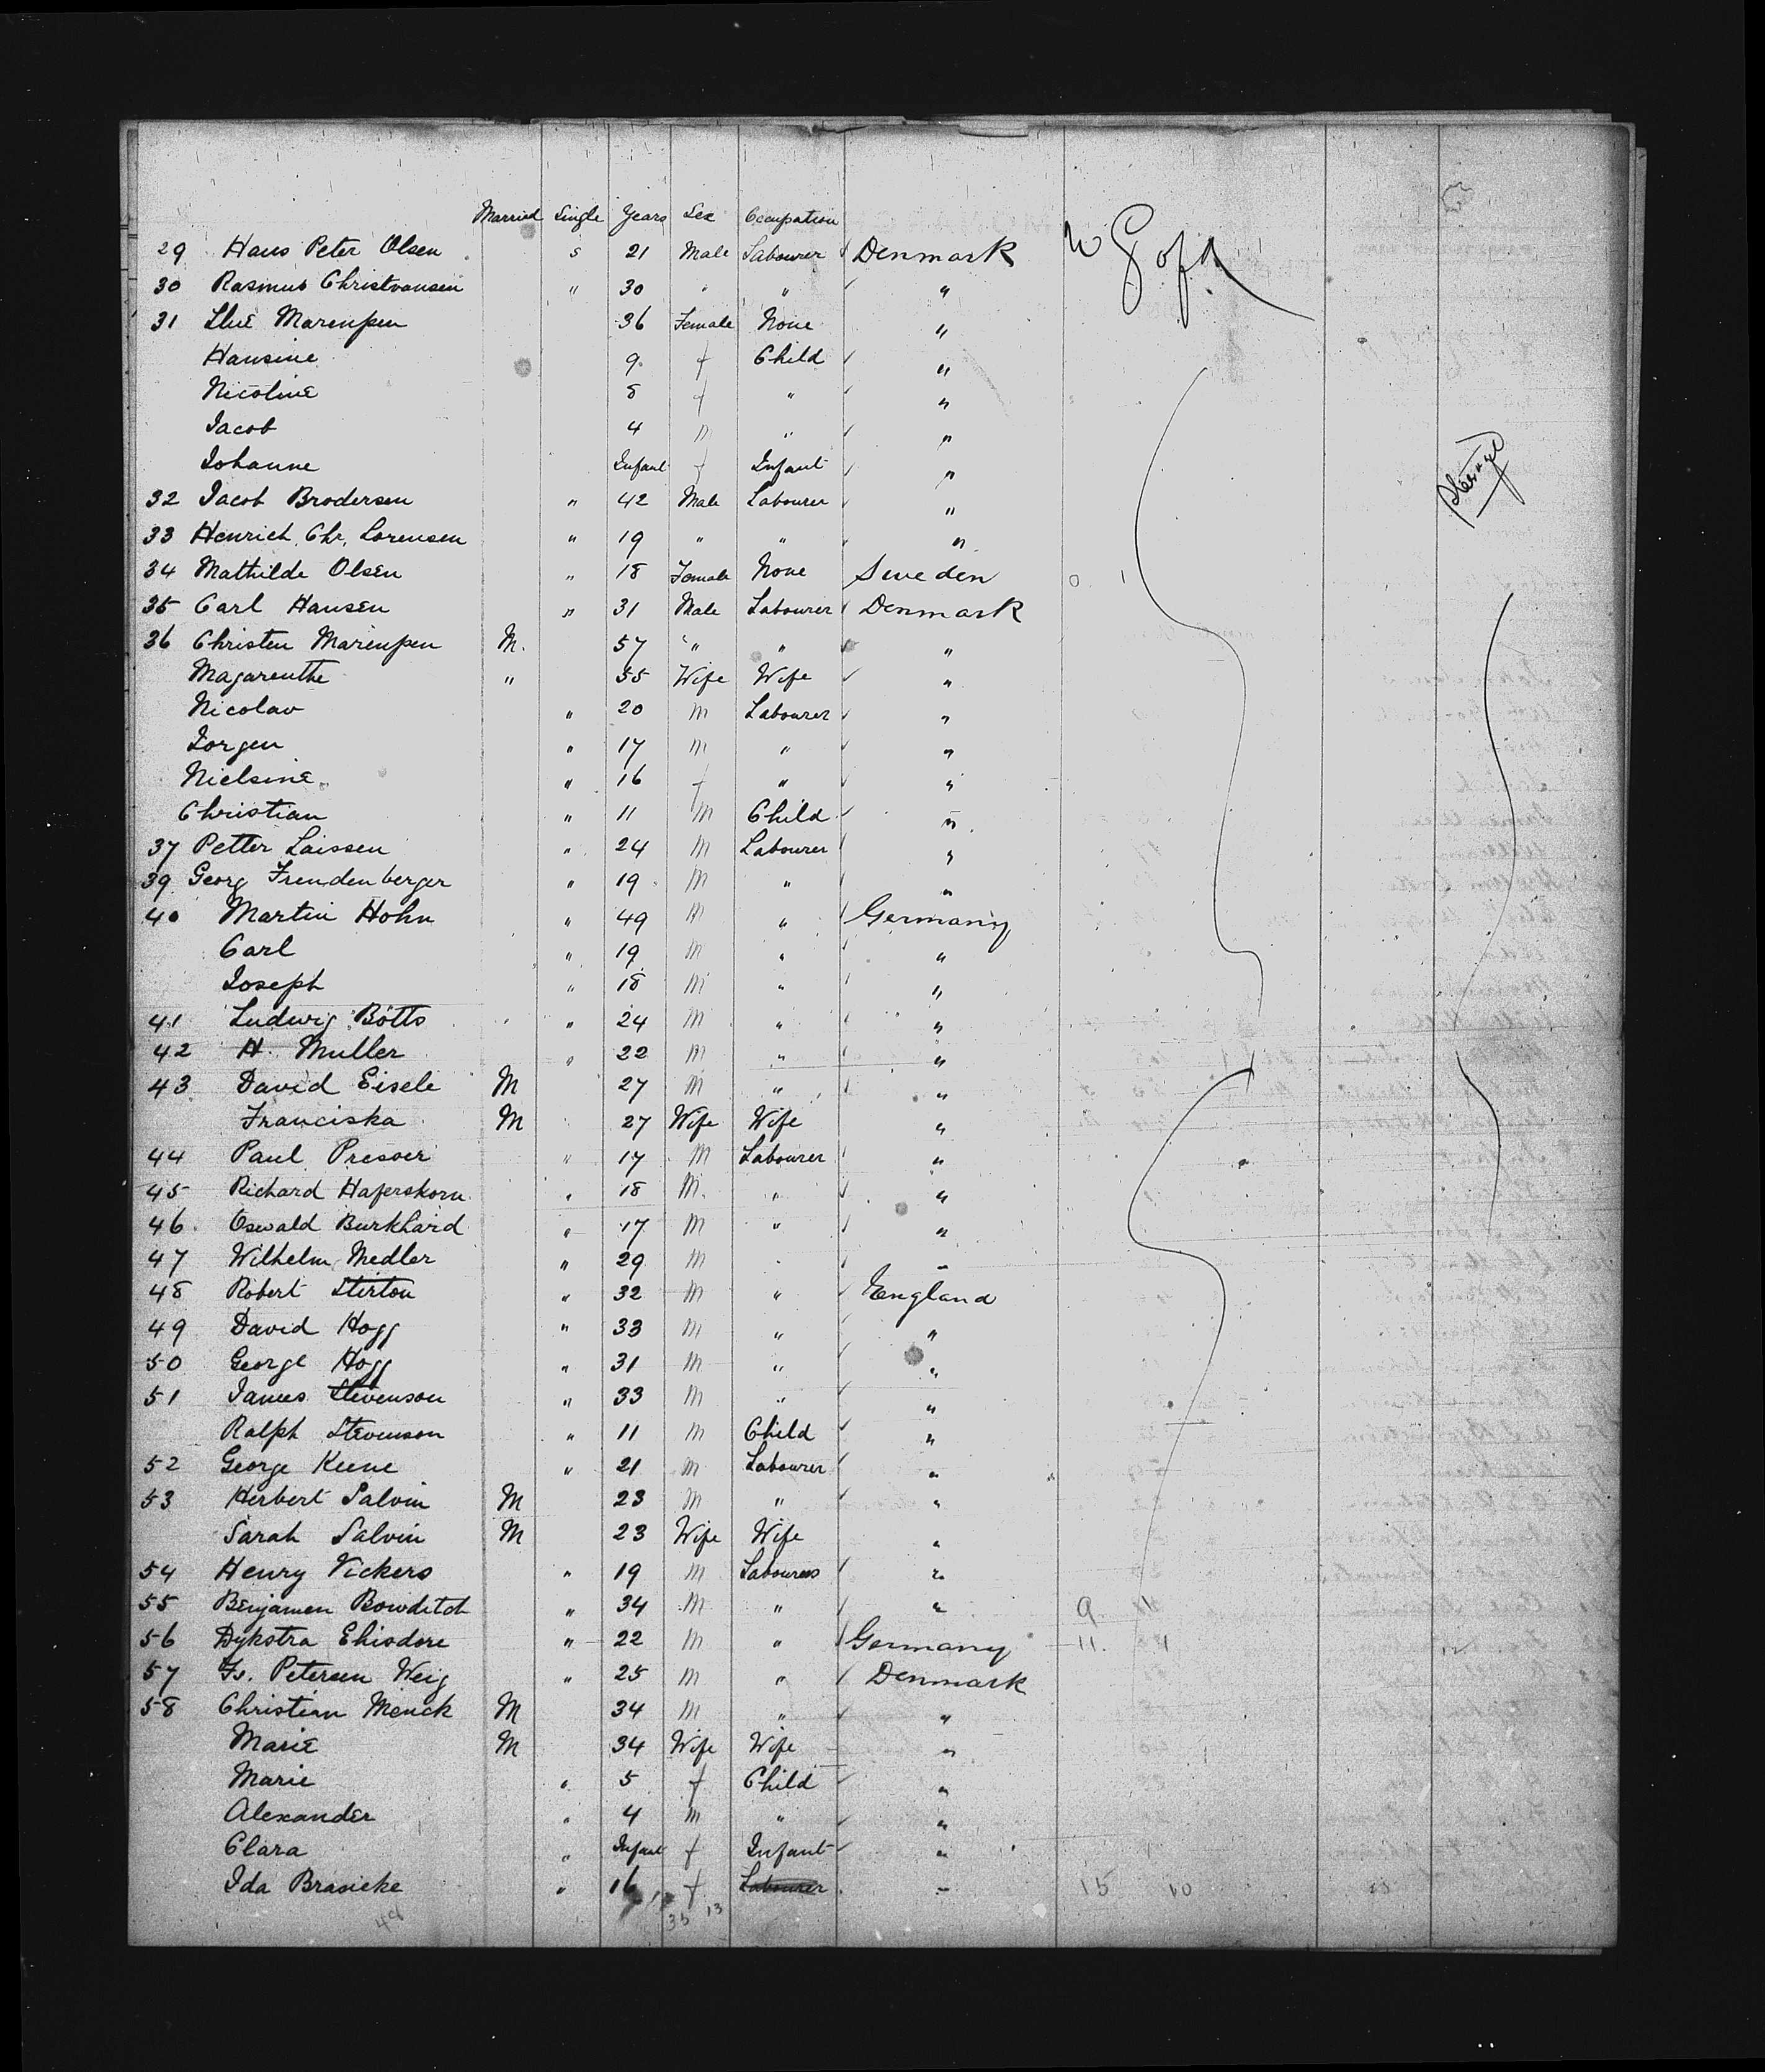 Married Single Years Sex Occupation
29 Hans Peter Olsen s 21 Male Labourer Denmark
30 Rasmus Christvansen " 30 " " "
31 Marenpen 36 Female None "
Hansine 9 f Child "
Nicoline 8 f " "
Jacob 4 m " "
Johanne Infant f Infant "
32 Jacob Brodersen " 42 Male Labourer "
33 Henrich Chr. Lorensen " 19 " " "
34 Mathilde Olsen " 18 Female None Sweden 0 1
35 Carl Hansen " 31 Male Labourer Denmark
36 Christen Marenpen M. 57 " " "
Magarenthe " 55 Wife Wife "
Nicolav " 20 m Labourer "
Jorgen " 17 m " "
Nielsine " 16 f " "
Christian " 11 m Child "
37 Petter Laissen " 24 m Labourer "
39 Georg Frendenberger " 19 m " "
40 Martin Hohn " 49 m " Germany
Carl " 19 m " "
Joseph " 18 m " "
41 Ludwig Botts " 24 m " "
42 H. Muller " 22 m " "
43 David Eisele M 27 m " "
Franciska M 27 Wife Wife "
44 Paul Presser " 17 m Labourer "
45 Richard Haferskorn " 18 m. " "
46 Oswald Burkhard " 17 m " "
47 Wilhelm Medler " 29 m " "
48 Robert Stirton " 32 m " England
49 David Hogg " 33 m " "
50 George Hogg " 31 m " "
51 James Stevenson " 33 m " "
Ralph Stevenson " 11 m Child "
52 George Keene " 21 m Labourer "
53 Herbert Salvin M 23 m " "
Sarah Salvin M 23 Wife Wife "
54 Henry Vickers " 19 m Labourer "
55 Benjamen Bowditch " 34 m " " 9 11
56 Dykstra Ehisdore " 22 m " Germany 11. 1 12
57 Js. Petersen Weig " 25 m " Denmark
58 Christian Menck M 34 m " "
Marie M 34 Wife Wife "
Marie " 5 f Child "
Alexander " 4 m " "
Clara " Infant f Infant "
Ida Brasicke " 16 f Labourer " 15 10
48 35 13